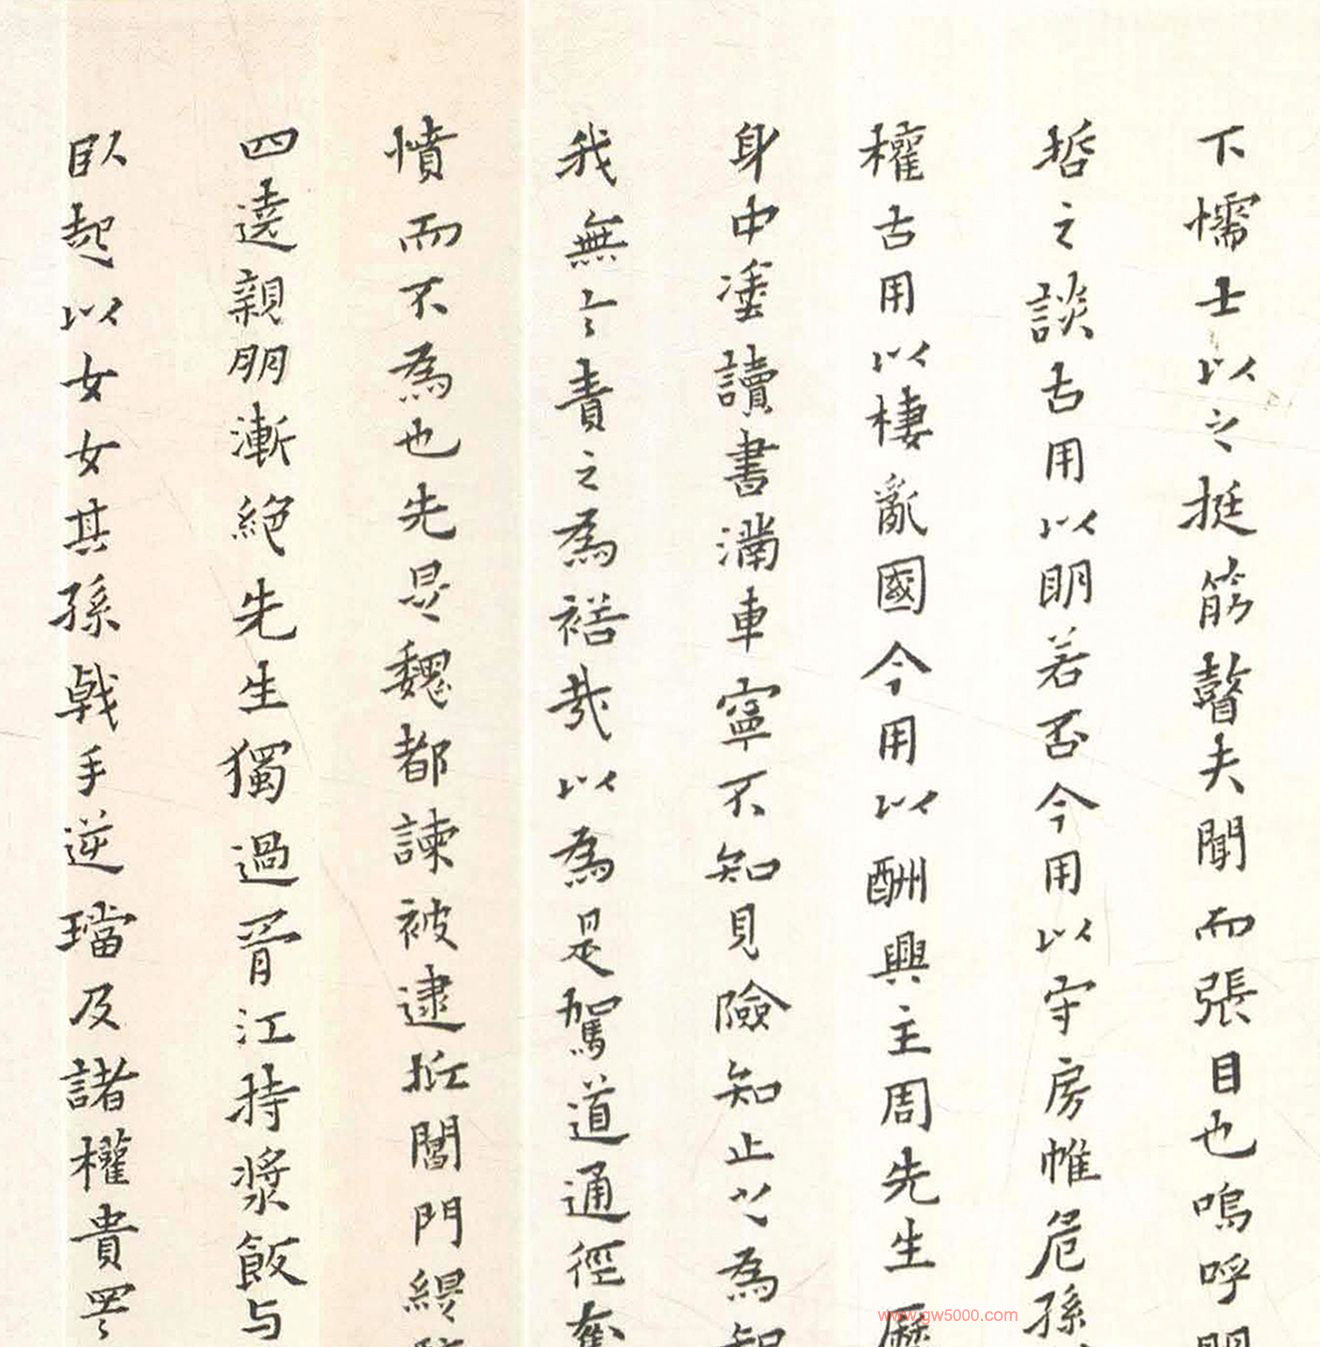 下懦士以之挺筋瞽夫聞而張目也嗚呼
哲之談古用以明若否今用以守房帷危孫
權古用以棲亂國今用以酬興主周先生歷
身中塗讀書滿車寧不知見險知止之為
我無言責之為裕哉以為是駕道通徑奮
憤而不為也先是魏都諫被逮抵閶門緹
四遶親朋漸絕先生獨過胥江持漿飯与
臥起以女女其孫戟手逆璫及諸權貴罟
www.gw5000.com